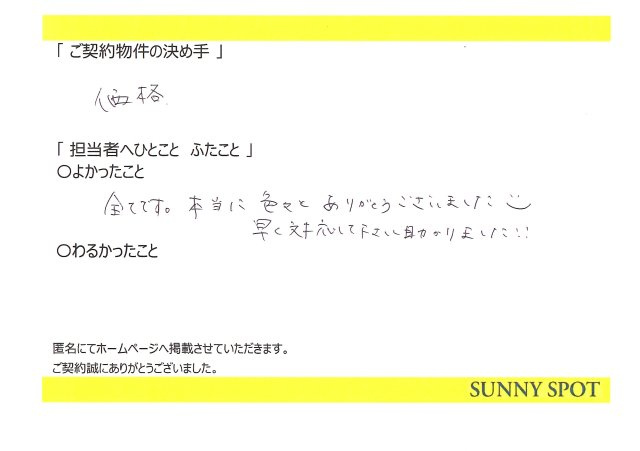 「 ご契約物件の決め手 」
価格
「 担当者へひとこと ふたこと 」
○よかったこと
全てです。本当に色々とありがとうございました
早く対応して下さい助かりました!!
○わるかったこと
匿名にてホームページへ掲載させていただきます。
ご契約誠にありがとうございました。
SUNNY SPOT